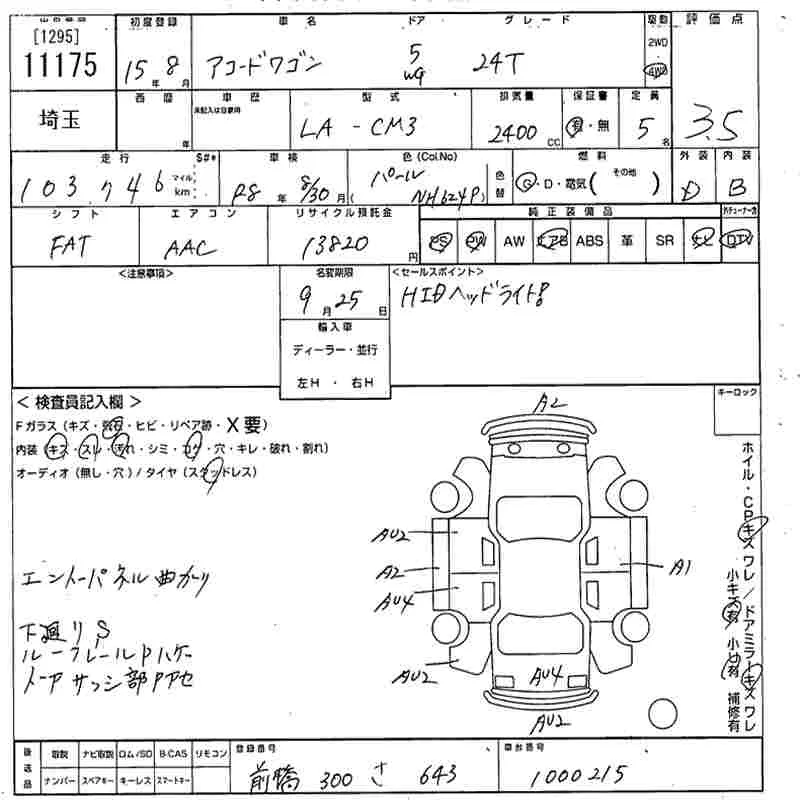 [1295]
11175
初度登録 車名 ドア グレード 駆動 評価点
15年 8月 アコードワゴン 5 WG 24T 2WD 4WD
埼玉
西暦 車歴 型式 排気量 保証書 定員
未記入は自家用
年 LA - CM3 2400 CC 有・無 5名 3.5
走行 S#* 車検 色(Col.No) 燃料 外装 内装
103,746 マイル km R8年 8/30月 ( パール NH624P) 色替 G・D・電気( その他 ) D B
シフト エアコン リサイクル預託金 純正装備品
FAT AAC 13820円 PS PW AW エアB ABS 革 SR ナビ DTV
<注意事項> 名変期限 <セールスポイント>
9月25日 HIDヘッドライト!
輸入車
ディーラー・並行
左H ・ 右H
キーロック
< 検査員記入欄 >
Fガラス (キズ・飛石・ヒビ・リペア跡・X要)
内装 (キズ・スレ・汚れ・シミ・コゲ・穴・キレ・破れ・割れ)
オーディオ (無し・穴) / タイヤ (スタッドレス)
A2
AU2
A2 A1
AU4
AU2 AU4
AU2
エントーパネル曲がり
下廻りS
ルーフレールPハゲ
ドアサッシ部Pアセ
ホイル・CPキズワレ/ドアミラーキズワレ
小キズ有 小凹有 補修有
後送品 取説 ナビ取説 ロム/SD B-CAS リモコン 登録番号 車台番号
ナンバー スペアキー キーレス スマートキー 前橋 300 さ 643 1000215